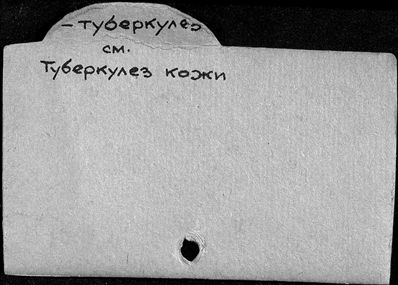 – туберкулез
см.
Туберкулез кожи